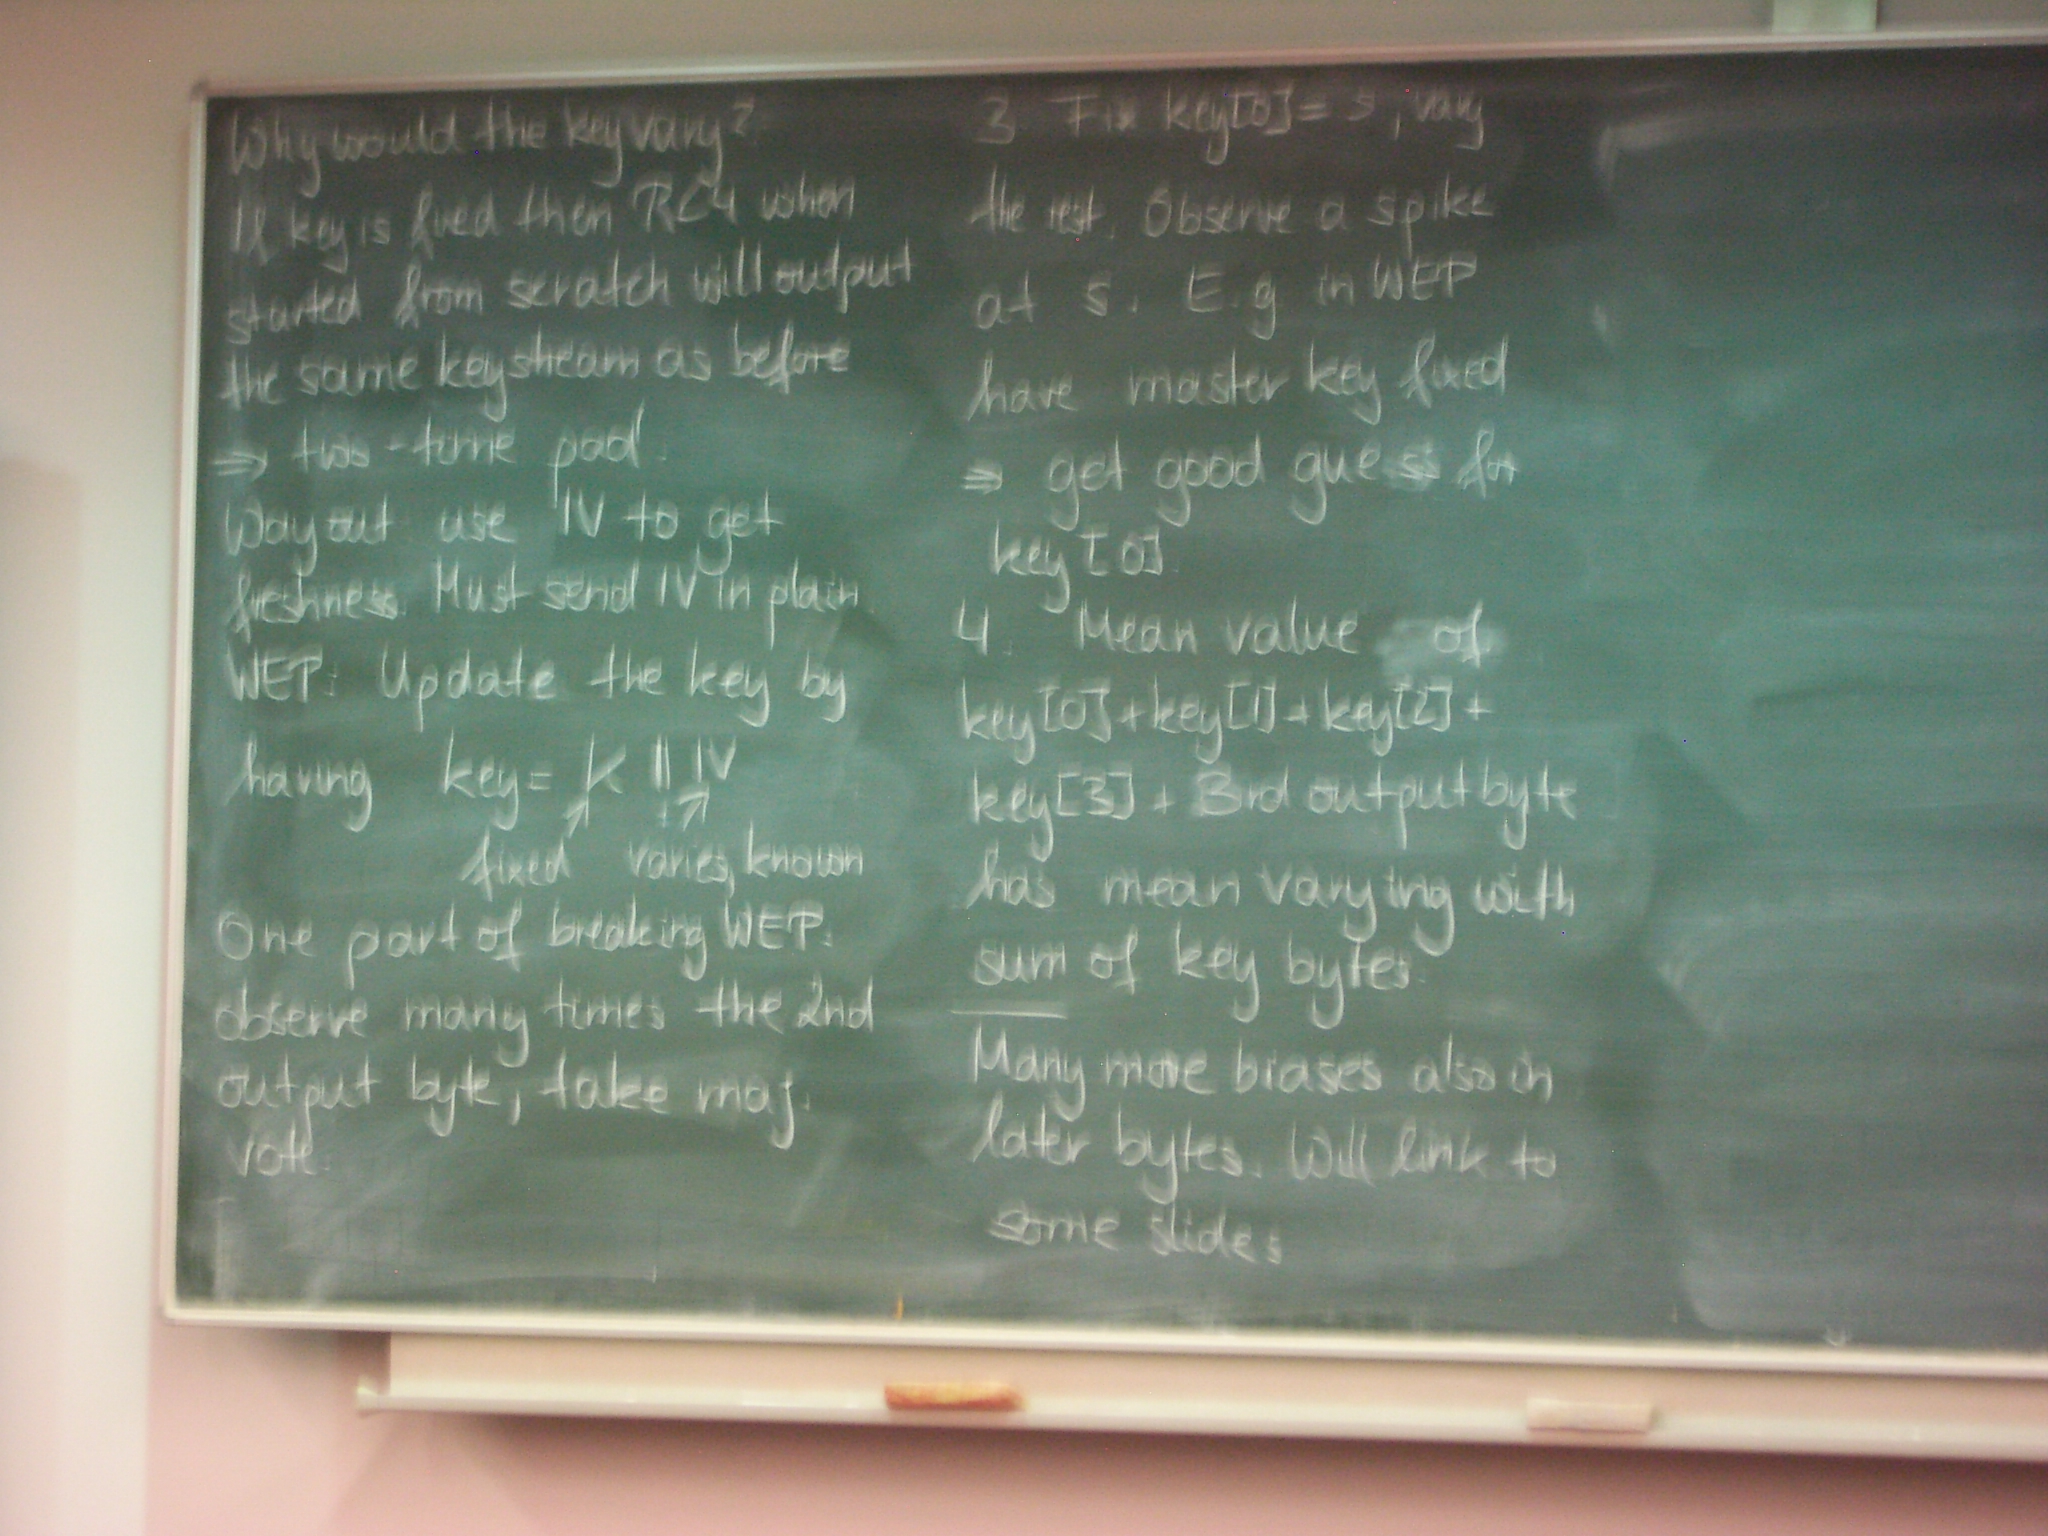 Why would the key vary?
If key is fixed then RC4 when
started from scratch will output
the same keystream as before
⇒ two-time pad.
Way out use IV to get
freshness. Must send IV in plain.
WEP: Update the key by
having key = K || IV
fixed varies, known
One part of breaking WEP:
observe many times the 2nd
output byte, take maj.
vote.
3 Fix key[0] = s, vary
the rest. Observe a spike
at s. E.g in WEP
have master key fixed
⇒ get good guess for
key[0].
4. Mean value of
key[0]+key[1]+key[2]+
key[3] + 3rd output byte
has mean varying with
sum of key bytes.
Many more biases also in
later bytes. Will link to
some slides